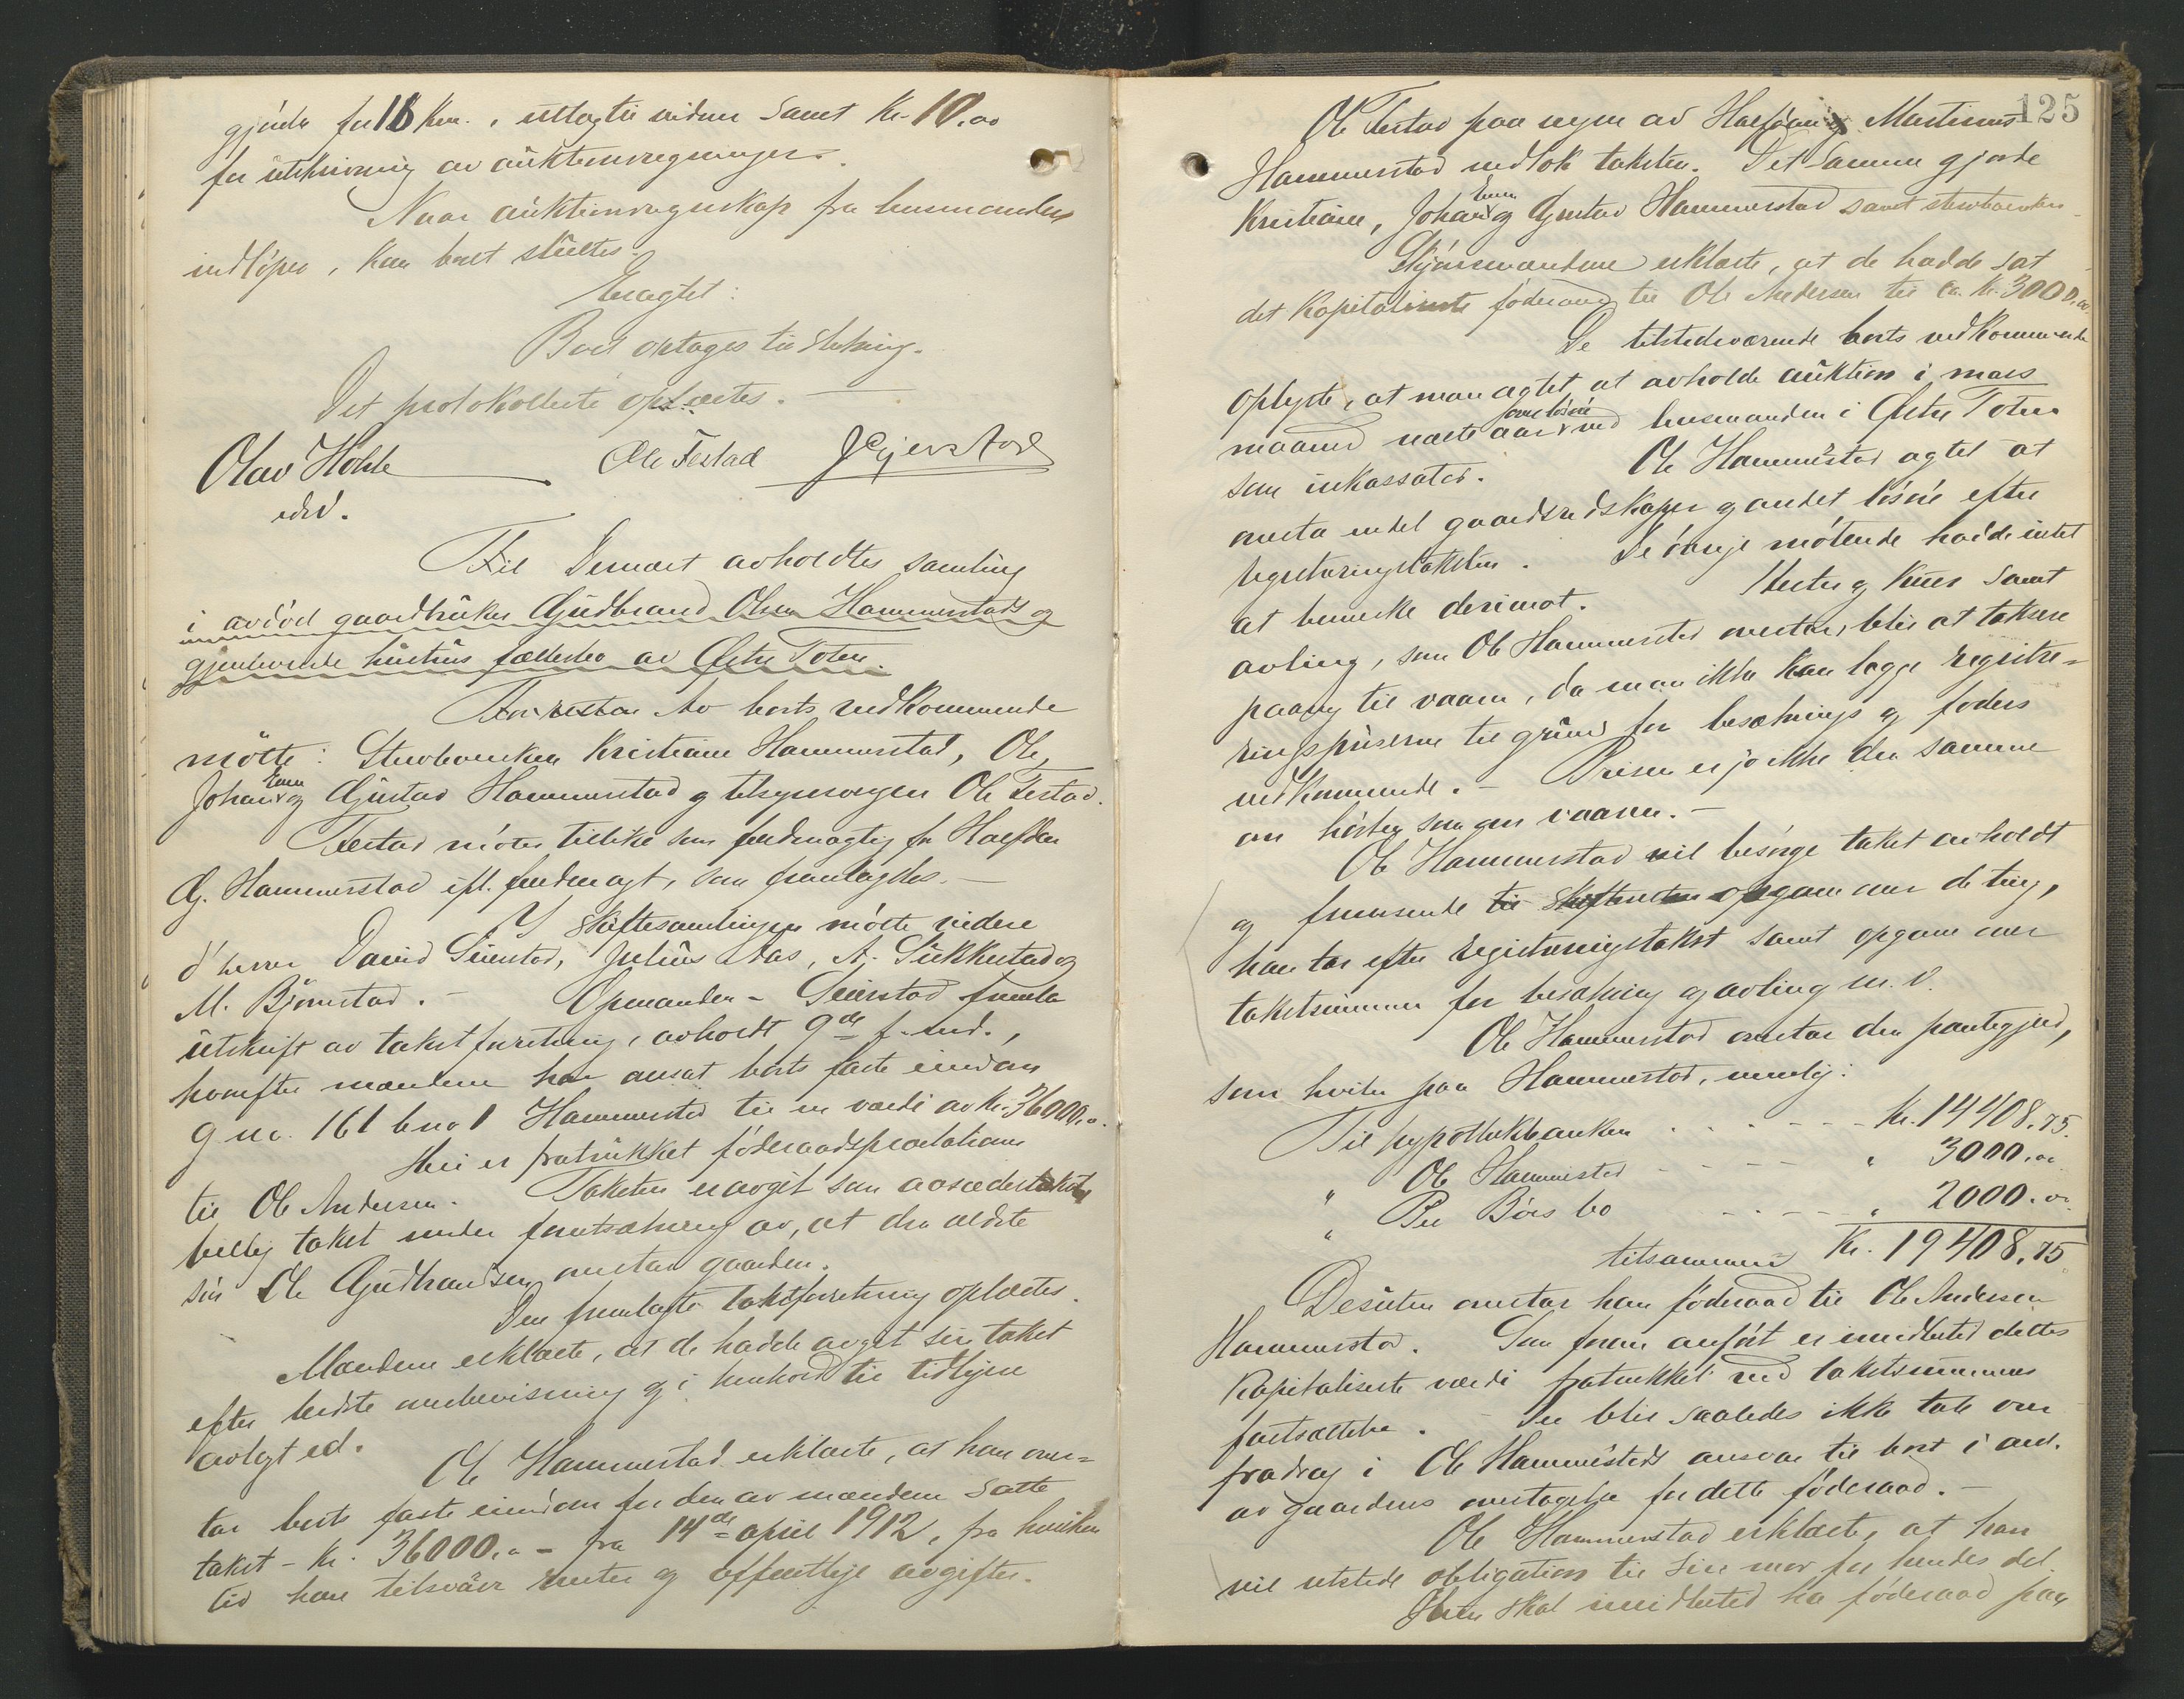 gjorde for 18 km. utlagte vidner samt kr. 10.00
for utskrivning av auktionsregninger.
Naar auktionsregnskap fra lensmanden
indløper, kan boet sluttes.
Eragtet:
Boet optages til slutning.
Det protokollerte oplæstes.
Olav Hohle Ole Festad J Gjerstad
edsv.
Til Dernæst avholdtes samling
i avdød gaardbruker Gudbrand Olsen Hammerstads og
gjenlevende hustrus fællesbo av Østre Toten.
For retten Av boets vedkommende
møtte: Sterboenken Kristiane Hammerstad, Ole,
Johan Even og Gustav Hammerstad og tilsynsvergen Ole Festad.
Festad møter tillike som fuldmægtig for Halfdan
G. Hammerstad ifl. fuldmagt, som fremlagdes.
I skiftesamlingen møtte videre
d'herrer David Seierstad, Julius Aas, A. Sukkestad og
M. Bjørnstad. Opmanden - Seierstad fremla
utskrift av takstforretning, avholdt 9de f. md.,
hvorefter mændene har ansat boets faste eiendom
g.no. 161 b.no 1 Hammerstad til en værdi av kr. 36000.00.
Heri er fratrukket føderaadspræstationer
til Ole Andersen. Taksten er avgit som aasædestakst,
billig takst under forutsætning av, at den ældste
søn Ole Gudbrandsen overtar gaarden.
Den fremlagte takstforretning oplæstes.
Mændene erklærte, at de hadde avgit sin takst
efter bedste overbevisning og i henhold til tidligere
avlagt ed.
Ole Hammerstad erklærte, at han over=
tar boets faste eiendom for den av mændene satte
takst - kr. 36000.00 - fra 14de april 1912, fra hvilken
tid han tilsvarer renter og offentlige avgifter.
125
Ole Festad paa vegne av Halfdan og Martinus
Hammerstad vedtok taksten. Det samme gjorde
Kristiane, Johan Even og Gustav Hammerstad samt sterboenken
Skjønsmændene erklærte, at de hadde sat
det kapitaliserte føderaad til Ole Andersen til ca. kr. 3000.00.
De tilstedeværende boets vedkommende
oplyste, at man agtet at avholde auktion i mars
maaned næste aar over løsøre ved lensmanden i Østre Toten
som inkassator. Ole Hammerstad agtet at
overta endel gaardsredskaper og andet løsøre efter
registreringstaksten. De øvrige møtende hadde intet
at bemerke derimot. Hester og kuer samt
avling, som Ole Hammerstad overtar, blir at taksere
paany til vaaren, da man ikke kan lægge registre=
ringsprisene til grund for besætnings og foders
vedkommende. - Prisen er jo ikke den samme
om høsten som om vaaren. -
Ole Hammerstad vil besørge takst avholdt
og fremsende til skifteretten opgave over de ting,
han tar efter registreringstakst samt opgave over
takstsummen for besætning og avling m. v.
Ole Hammerstad overtar den pantegjæld,
som hviler paa Hammerstad, nemlig:
Til hypothekbanken - - - - - kr. 14408.75.
" Ole Hammerstad - - - - " 3000.00
" Per Børs bo - - - - " 2000.00
tilsammen kr. 19408.75
Desuten overtar han føderaad til Ole Andersen
Hammerstad. Som foran anført er imidlertid dettes
kapitaliserte værdi fratrukket ved takstsummens
fastsættelse. Der blir saaledes ikke tale om
fradrag i Ole Hammerstads ansvar til boet i anl.
av gaardens overtagelse for dette føderaad. -
Ole Hammerstad erklærte, at han
vil utstede obligation til sin mor for hendes del
Hun skal imidlertid ha føderaad paa